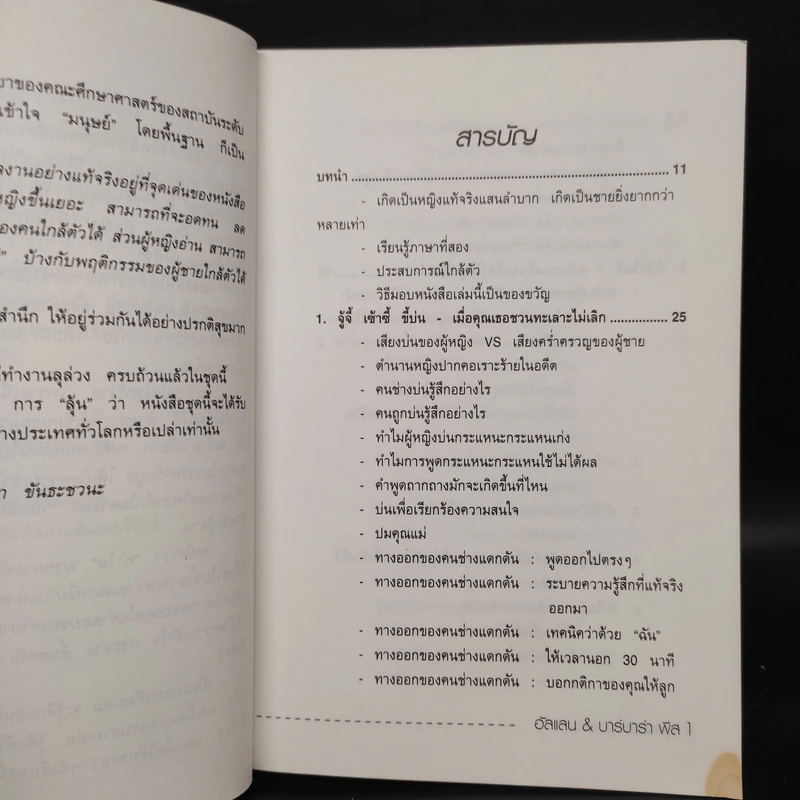 ของคณะศึกษาศาสตร์ของสถาบันระดับ
เข้าใจ “มนุษย์” โดยพื้นฐาน ก็เป็น
งานอย่างแท้จริงอยู่ที่จุดเด่นของหนังสือ
หญิงขึ้นเยอะ สามารถที่จะอดทน ลด
ของคนใกล้ตัวได้ ส่วนผู้หญิงอ่าน สามารถ
บ้างกับพฤติกรรมของผู้ชายใกล้ตัวได้
สำนึก ให้อยู่ร่วมกันได้อย่างปรกติสุขมาก
ทำงานลุล่วง ครบถ้วนแล้วในชุดนี้
การ “ลุ้น” ว่า หนังสือชุดนี้จะได้รับ
างประเทศทั่วโลกหรือเปล่าเท่านั้น
า ขันธะชวนะ
สารบัญ
บทนำ ........................................................................ 11
- เกิดเป็นหญิงแท้จริงแสนลำบาก เกิดเป็นชายยิ่งยากกว่า
หลายเท่า
- เรียนรู้ภาษาที่สอง
- ประสบการณ์ใกล้ตัว
- วิธีมอบหนังสือเล่มนี้เป็นของขวัญ
1. จู้จี้ เซ้าซี้ ขี้บ่น - เมื่อคุณเธอชวนทะเลาะไม่เลิก ................ 25
- เสียงบ่นของผู้หญิง VS เสียงคร่ำครวญของผู้ชาย
- ตำนานหญิงปากคอเราะร้ายในอดีต
- คนช่างบ่นรู้สึกอย่างไร
- คนถูกบ่นรู้สึกอย่างไร
- ทำไมผู้หญิงบ่นกระแหนะกระแหนเก่ง
- ทำไมการพูดกระแหนะกระแหนใช้ไม่ได้ผล
- คำพูดถากถางมักจะเกิดขึ้นที่ไหน
- บ่นเพื่อเรียกร้องความสนใจ
- ปมคุณแม่
- ทางออกของคนช่างแดกดัน : พูดออกไปตรงๆ
- ทางออกของคนช่างแดกดัน : ระบายความรู้สึกที่แท้จริง
ออกมา
- ทางออกของคนช่างแดกดัน : เทคนิคว่าด้วย “ฉัน”
- ทางออกของคนช่างแดกดัน : ให้เวลานอก 30 นาที
- ทางออกของคนช่างแดกดัน : บอกกติกาของคุณให้ลูก
อัลแลน & บาร์บาร่า พีส 1